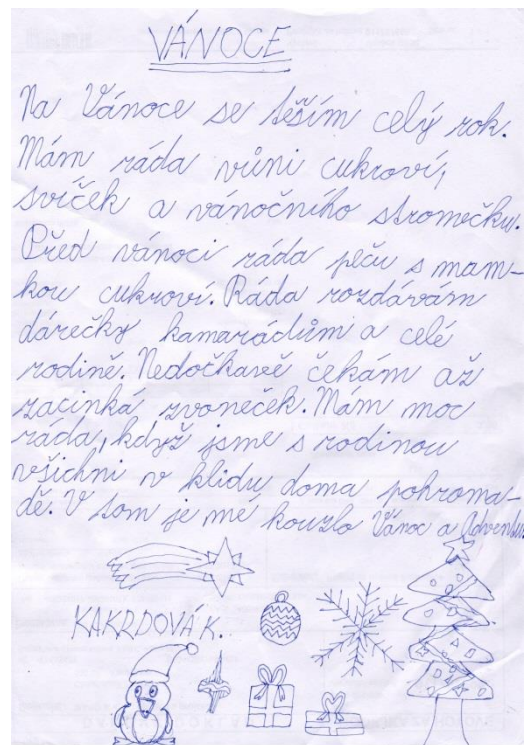 VÁNOCE
Na Vánoce se těším celý rok.
Mám ráda vůni cukroví,
svíček a vánočního stromečku.
Před vánoci ráda peču s mam-
kou cukroví. Ráda rozdávám
dárečky kamarádům a celé
rodině. Nedočkavě čekám až
zacinká zvoneček. Mám moc
ráda, když jsme s rodinou
všichni v klidu doma pohroma-
dě. V tom je mé kouzlo Vánoc a Adventu.
KAKRDOVÁ K.